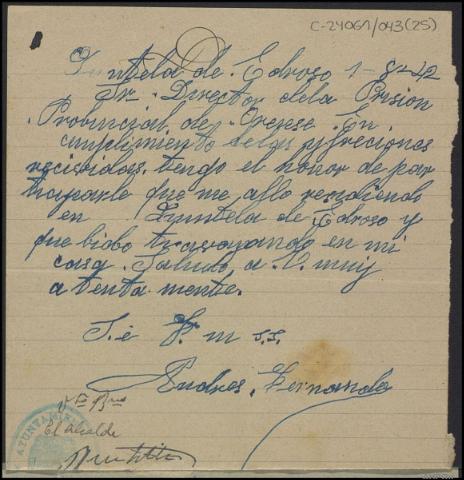 C-24061/043(25)
Quntela de Edroso 1-8-42
Sr. Director dela Prision
Provincial de Orense. En
cumplimiento
reciividas tengo el honor de par
ticiparle que me allo residiendo
en Quntela de Edroso y
que bibo travagando en mi
casa. Saludo a V. muy
atenta mente.
S. e V. m s.s.
Andres Fernande
Vto Bno
El alcalde
AYUNTAMI